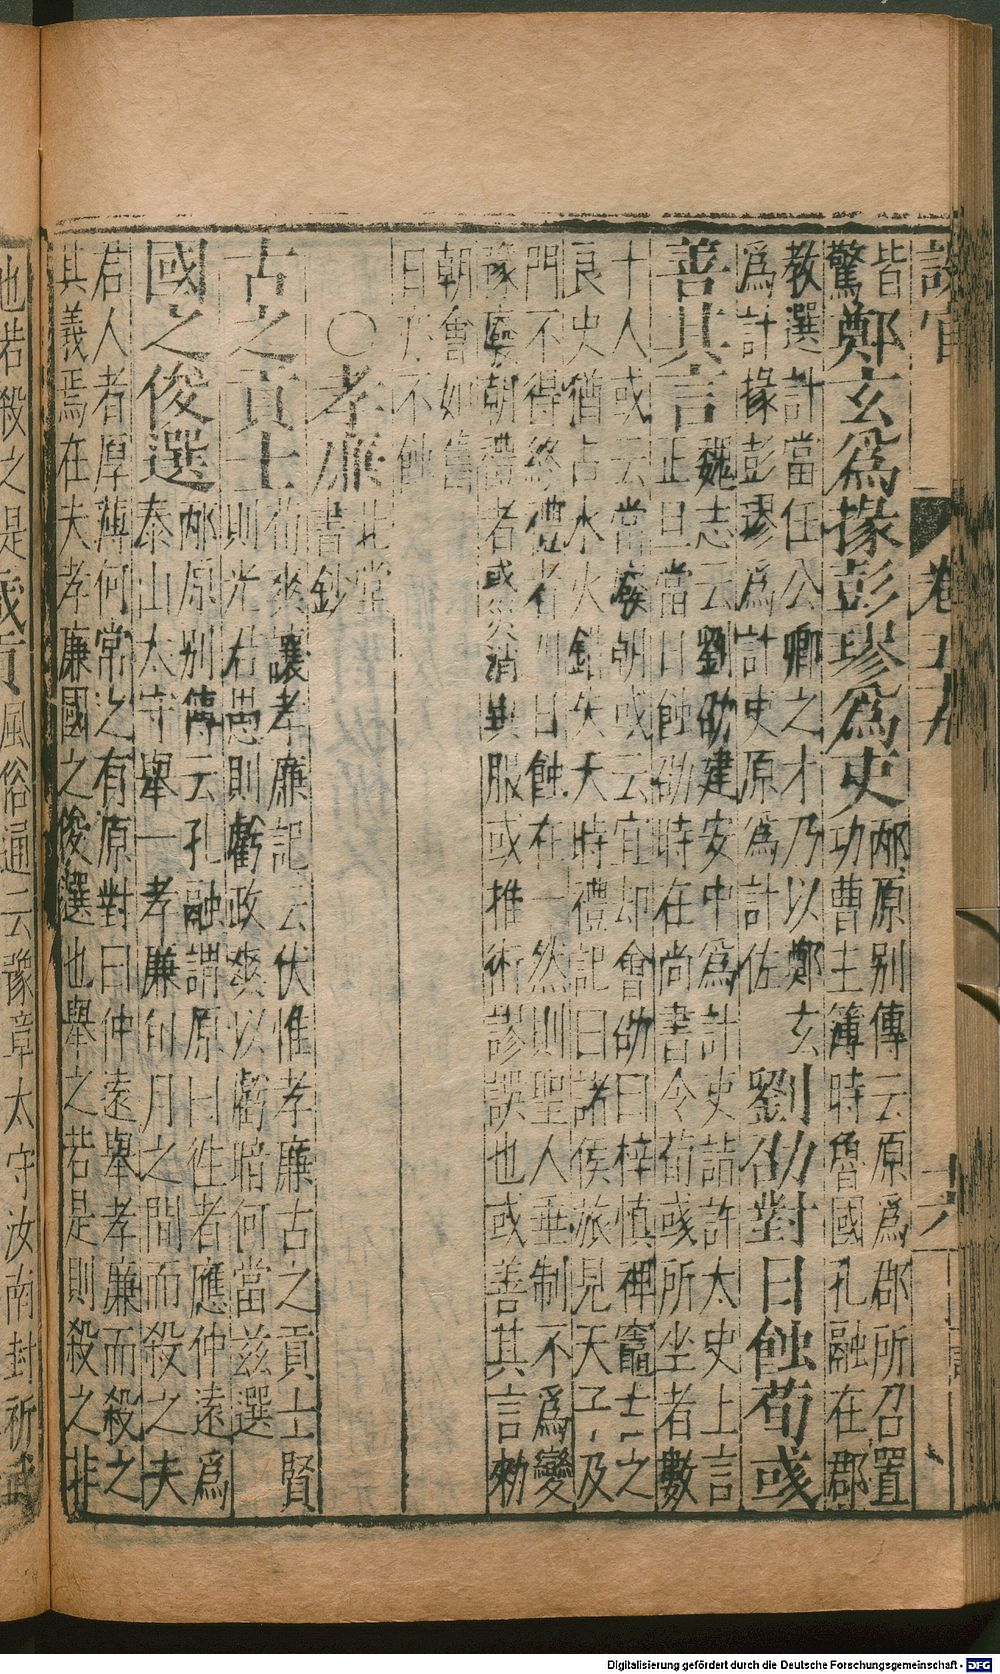 設官 卷五九 十八
皆
驚
鄭玄爲掾彭璆爲吏
邴原別傳云原爲郡所召置
功曹主簿時魯國孔融在郡
教選計當任公卿之才乃以鄭玄
爲計掾彭璆爲計吏原爲計佐
劉劭對日蝕荀彧
善其言
魏志云劉劭建安中爲計吏詣許太史上言
正旦當日蝕劭時在尚書令荀彧所坐者數
十人或云當廢朝或云宜却會劭曰梓慎裨竈古之
良史猶占水火錯失天時禮記曰諸侯旅見天子及
門不得終禮者四日蝕在一然則聖人垂制不爲變
豫廢朝禮者或災消異服或推術謬誤也或善其言勑
朝會如舊
日亦不蝕
〇孝廉
北堂
書鈔
古之貢士
荀爽讓孝廉記云伏惟孝廉古之貢士賢
則光右愚則虧政爽以虧暗何當兹選
國之俊選
邴原別傳云孔融謂原曰徃者應仲遠爲
泰山太守舉一孝廉旬月之間而殺之夫
君人者厚薄何常之有原對曰仲遠舉孝廉而殺之
其義焉在夫孝廉國之俊選也舉之若是則殺之非
也若殺之是
歲貢
風俗通云豫章太守汝南封祈
Digitalisierung gefördert durch die Deutsche Forschungsgemeinschaft - DFG